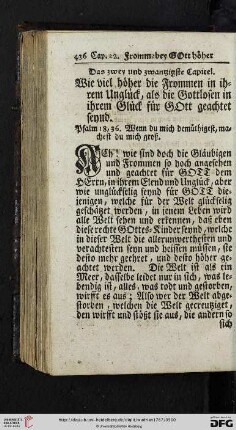 436 Cap. 22. Fromme bey GOtt höher
Das zwey und zwantzigste Capitel.
Wie viel höher die Frommen in ih-
rem Unglück, als die Gottlosen in
ihrem Glück für GOtt geachtet
seynd.
Psalm 18, 36. Wenn du mich demüthigest, ma-
chest du mich groß.
ACh! wie sind doch die Gläubigen
und Frommen so hoch angesehen
und geachtet für GOTT dem
HErrn, in ihrem Elend und Unglück, aber
wie unglückselig seynd für GOTT die-
jenigen, welche für der Welt glückselig
geschätzet werden, in jenem Leben wird
alle Welt sehen und erkennen, daß eben
diese rechte GOttes-Kinder seynd, welche
in dieser Welt die allerunwerthesten und
verachtesten seyn und heissen müssen, sie
desto mehr geehret, und desto höher ge-
achtet werden. Die Welt ist als ein
Meer, dasselbe leidet nur in sich, was le-
bendig ist, alles, was todt und gestorben,
wirfft es aus; Also wer der Welt abge-
storben, welchen die Welt gecreutziget,
den wirfft und stößt sie aus, die andern so
sich
UNIVERSITÄTS-
BIBLIOTHEK
HEIDELBERG
DFG